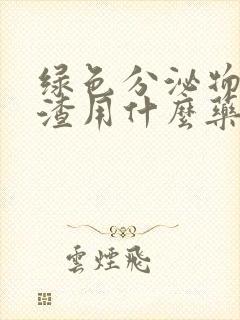 绿色分泌物
渣用什麽藥
雲煙飛